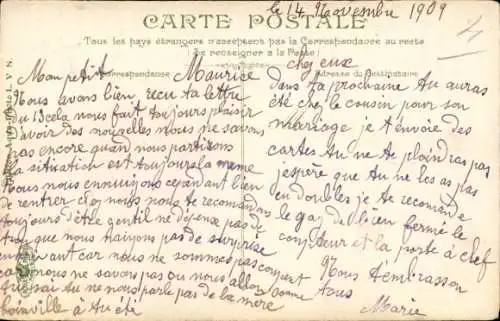 le 14 Novembre 1909
CARTE POSTALE
Tous les pays étrangers n'acceptent pas la Correspondance au recto
(Se renseigner à la Poste)
Correspondance
Adresse du Destinataire
Mon petit Maurice
Nous avons bien recu ta lettre
du 13 cela nous fait toujours plaisir
d'avoir des nouvelles nous ne savons
pas encore quand nous partirons
la situation est toujours la meme
nous nous ennuiyons cependant bien
de rentrer chez nous nous te recomandons
toujours d'être gentil ne dépense pas de
trop que nous naiyons pas de surprise
en car nous ne sommes pas
nous ne savons pas ou nous allons
aussi tu ne nous parle pas de la mère
Joinville à tu été
chez eux
dans ta prochaine tu auras
été chez le cousin pour son
marriage je t'envoie des
cartes tu ne te plaindras pas
j'espère que tu ne les as pas
en doubles je te recomande
le gaz de bien fermé le
conpteur et la porte à clef
Nous t'embrasson
tous
Marie